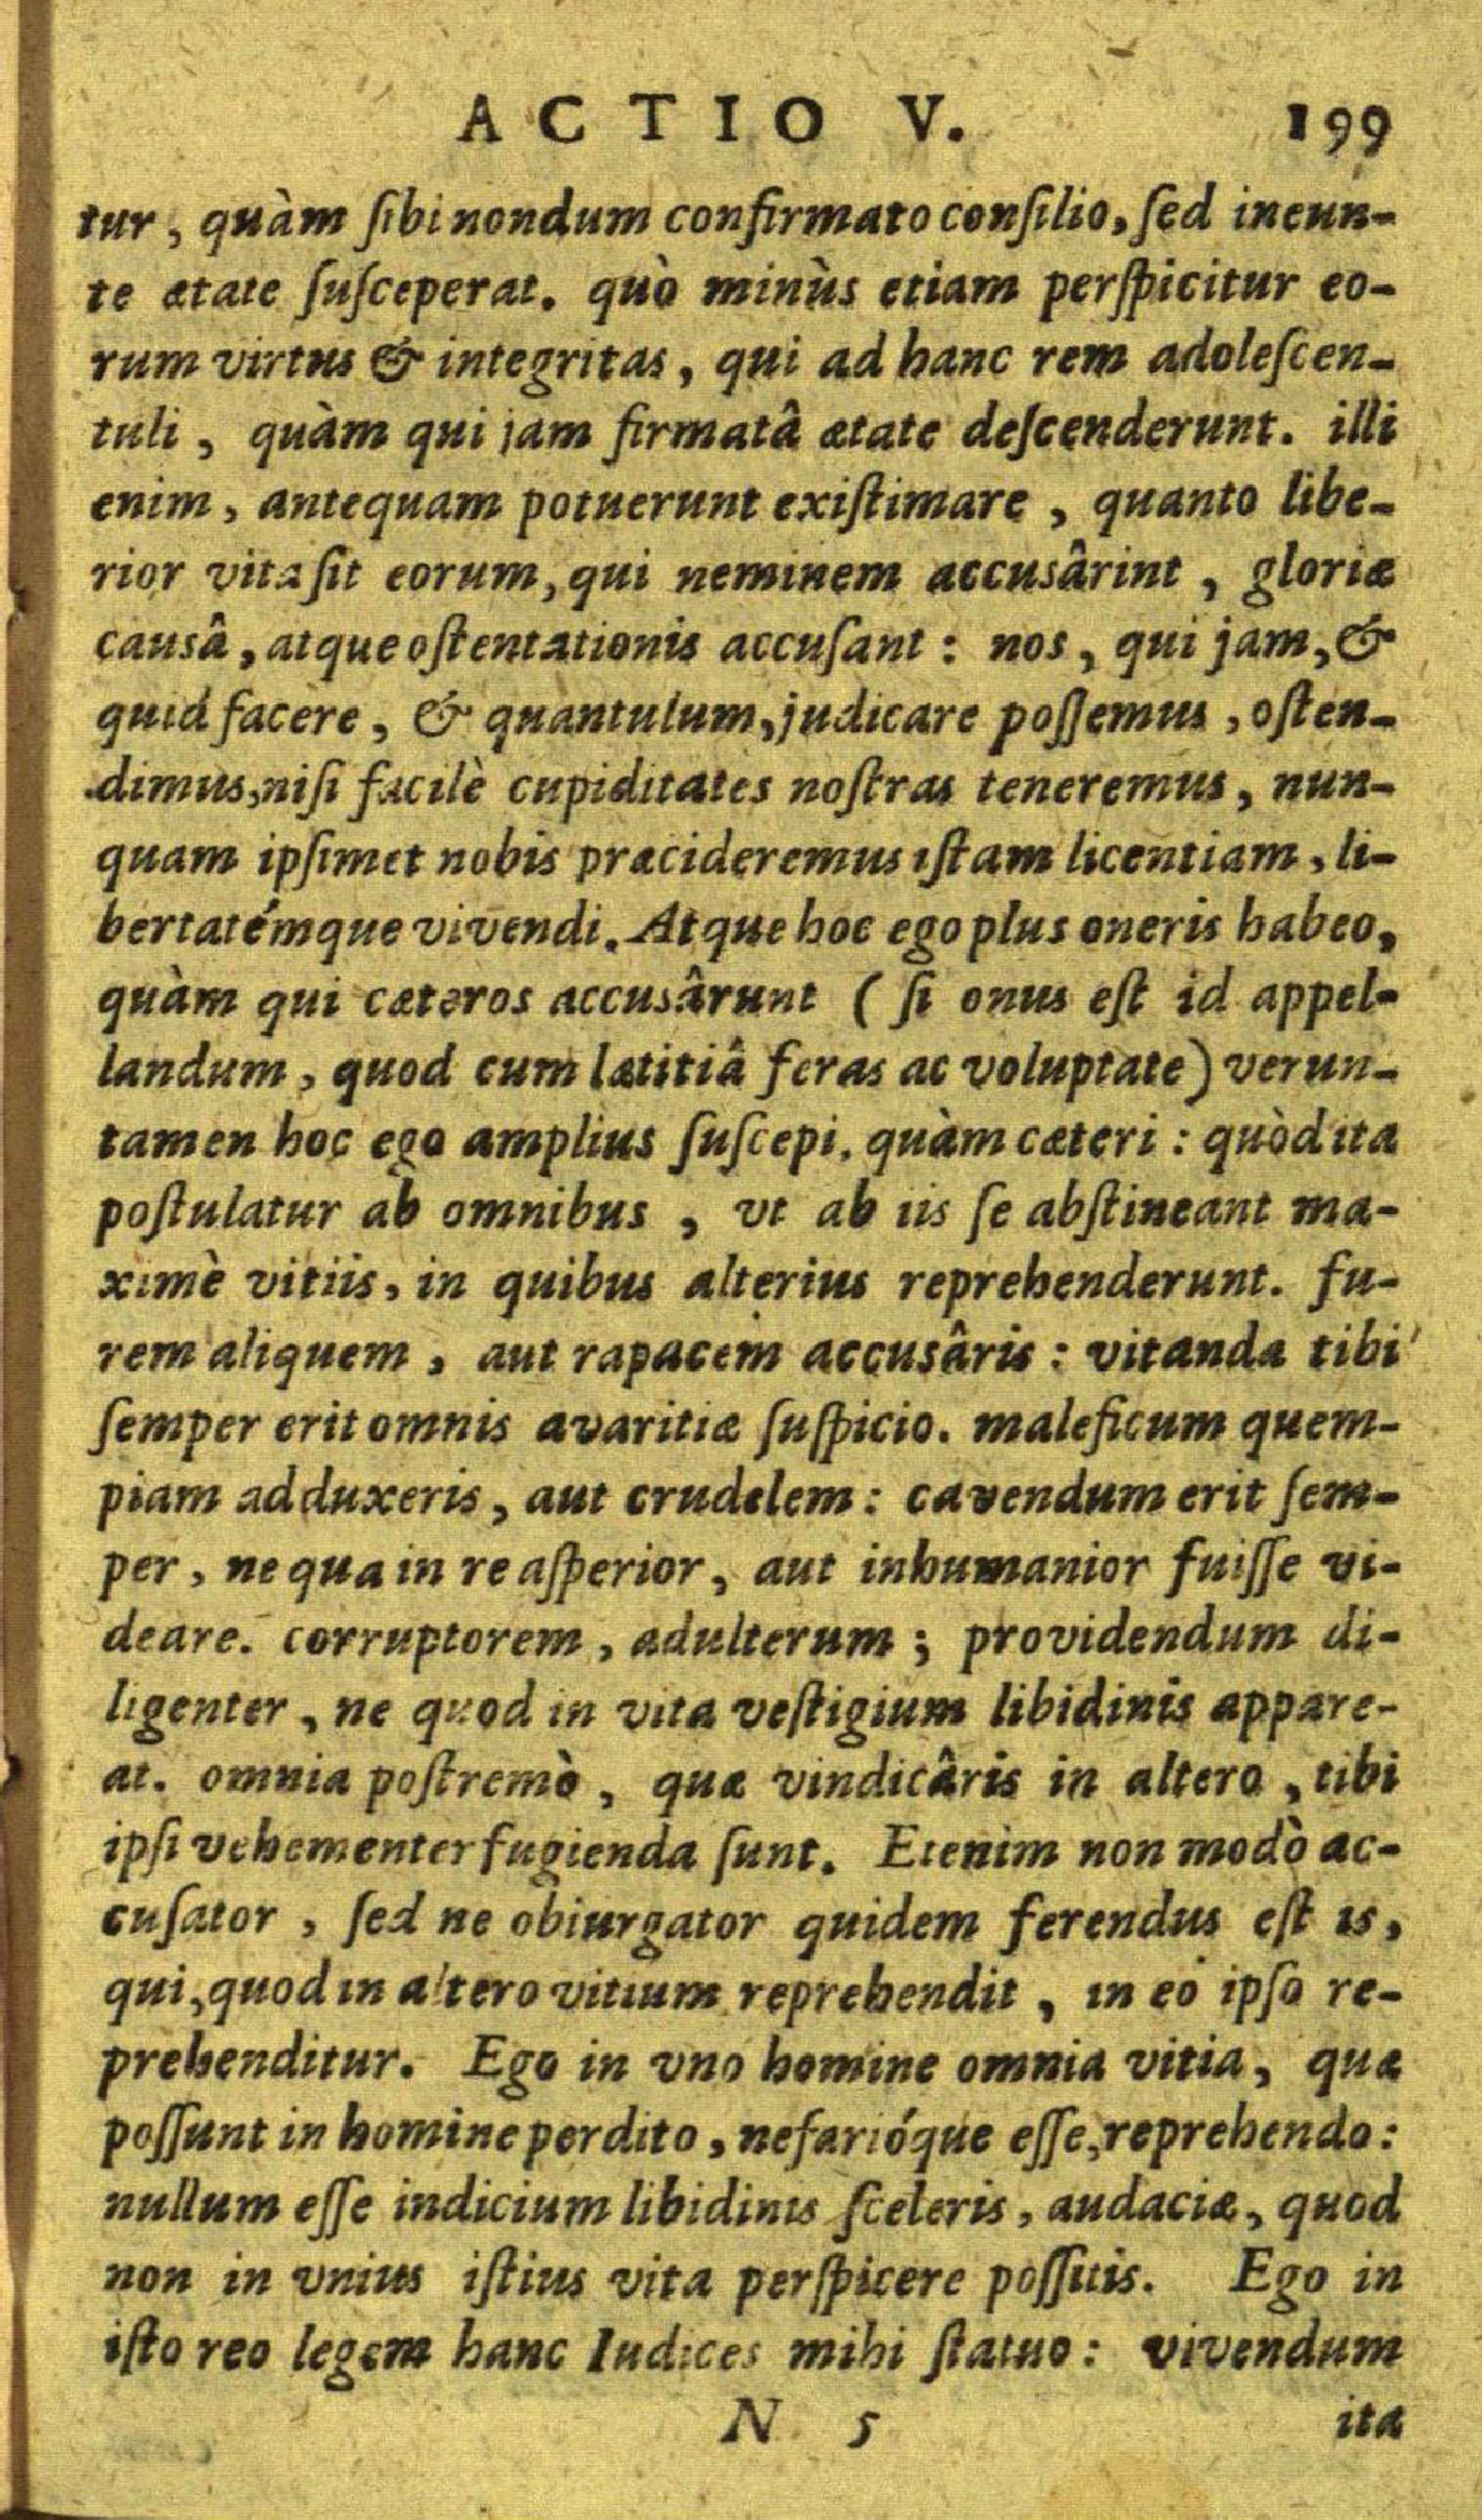 ACTIO V. 199
tur, quàm ſibi nondum confirmato conſilio, ſed ineun-
te ætate ſuſceperat. quò minùs etiam perſpicitur eo-
rum virtus & integritas, qui ad hanc rem adoleſcen-
tuli, quàm qui jam firmatâ ætate deſcenderunt. illi
enim, antequam potuerunt exiſtimare, quanto libe-
rior vita ſit eorum, qui neminem accusârint, gloriæ
causâ, atque oſtentationis accuſant: nos, qui jam, &
quid facere, & quantulum, judicare poſſemus, oſten-
dimus, niſi facilè cupiditates noſtras teneremus, nun-
quam ipſimet nobis præcideremus iſtam licentiam, li-
bertatémque vivendi. Atque hoc ego plus oneris habeo,
quàm qui cæteros accusârunt (ſi onus eſt id appel-
landum, quod cum lætitiâ feras ac voluptate) verun-
tamen hoc ego amplius ſuſcepi, quàm cæteri: quòd ita
poſtulatur ab omnibus, vt ab iis ſe abſtineant ma-
ximè vitiis, in quibus alterius reprehenderunt. fu-
rem aliquem, aut rapacem accusâris: vitanda tibi
ſemper erit omnis avaritiæ ſuſpicio. maleficum quem-
piam adduxeris, aut crudelem: cavendum erit ſem-
per, ne qua in re aſperior, aut inhumanior fuiſſe vi-
deare. corruptorem, adulterum; providendum di-
ligenter, ne quod in vita veſtigium libidinis appare-
at. omnia poſtremò, quæ vindicâris in altero, tibi
ipſi vehementer fugienda ſunt. Etenim non modò ac-
cuſator, ſed ne obiurgator quidem ferendus eſt is,
qui, quod in altero vitium reprehendit, in eo ipſo re-
prehenditur. Ego in vno homine omnia vitia, quæ
poſſunt in homine perdito, nefarióque eſſe, reprehendo:
nullum eſſe indicium libidinis ſceleris, audaciæ, quod
non in vnius iſtius vita perſpicere poſſitis. Ego in
iſto reo legem hanc Iudices mihi ſtatuo: vivendum
N 5 ita